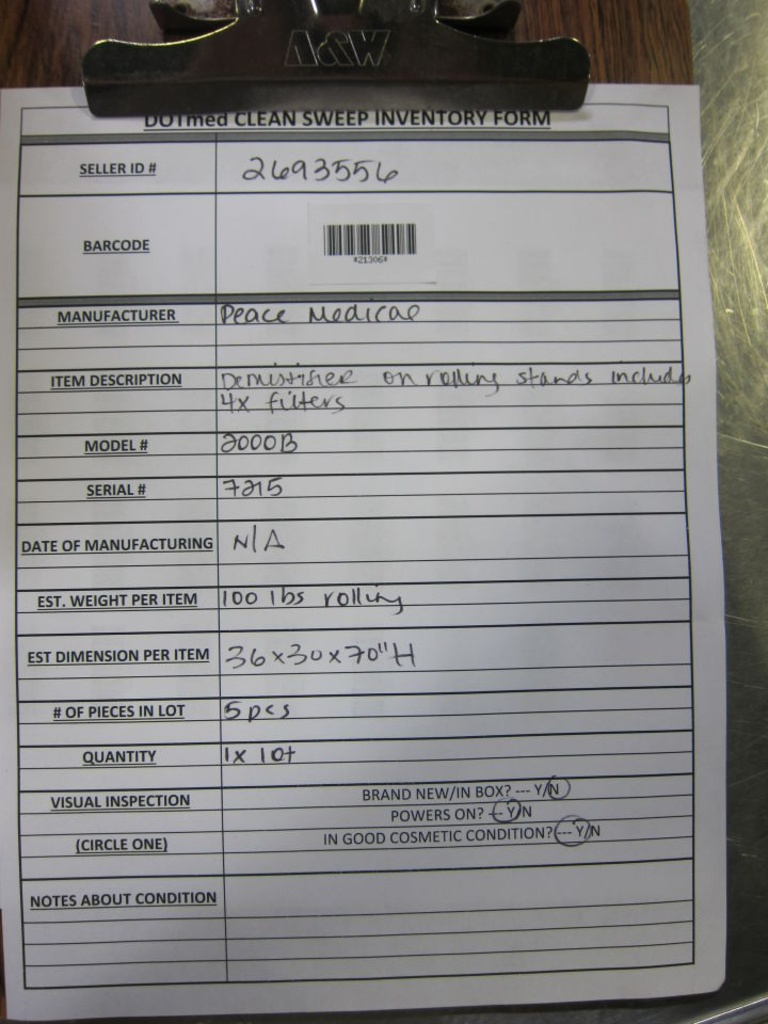 A&W
DOTmed CLEAN SWEEP INVENTORY FORM
SELLER ID # 2693556
BARCODE
*21306*
MANUFACTURER Peace Medical
ITEM DESCRIPTION Demistifier on rolling stands includes
4x filters
MODEL # 2000B
SERIAL # 7215
DATE OF MANUFACTURING N/A
EST. WEIGHT PER ITEM 100 lbs rolling
EST DIMENSION PER ITEM 36x30x70"H
# OF PIECES IN LOT 5 pcs
QUANTITY 1x lot
VISUAL INSPECTION BRAND NEW/IN BOX? --- Y/N
POWERS ON? --- Y/N
(CIRCLE ONE) IN GOOD COSMETIC CONDITION? --- Y/N
NOTES ABOUT CONDITION